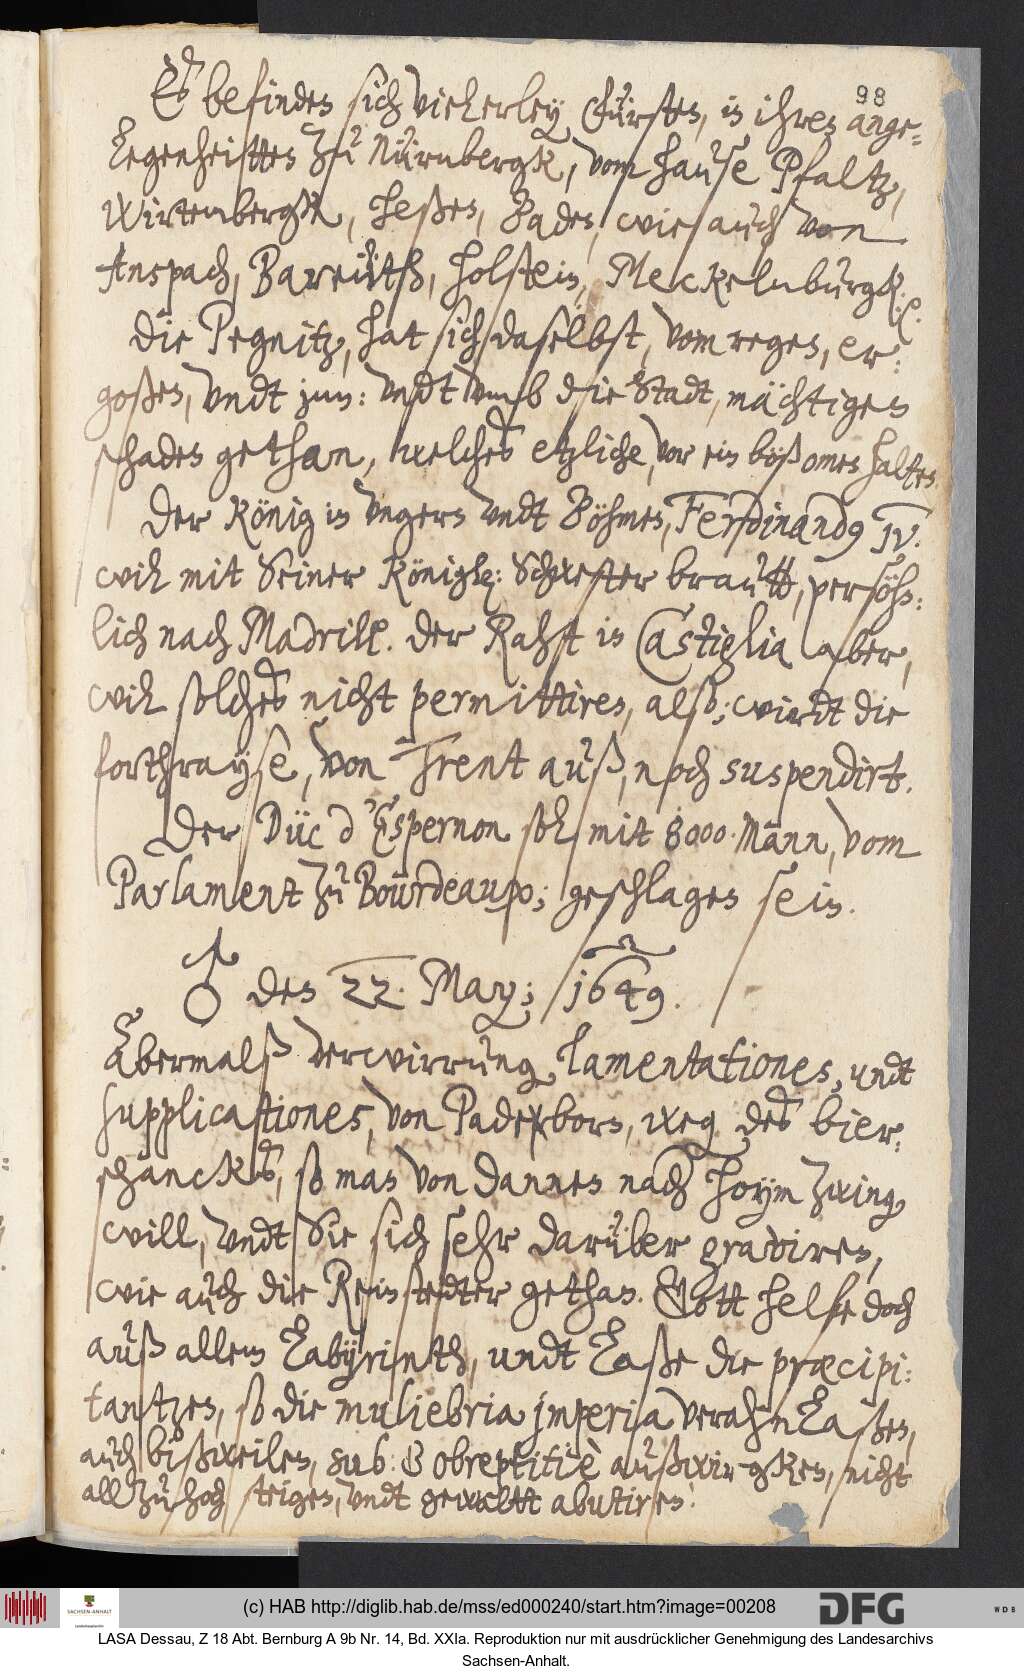 98
Es befinden sich vielerley Fürsten, in ihren ange-
legenheitten zu Nürnbergk, vom hause Pfaltz,
Wirtembergk, Heßen, Baden, wie auch von
Anspach, Bareüth, Holstein, Meckelnburgk. &.
Die Pegnitz, hat sich daselbst, vom regen, er:
goßen, undt inn: undt umb die Stadt, mächtigen
schaden gethan, welches etzliche, vor ein böß omen halten.
Der König in Ungern undt Böhmen, Ferdinandus IV.
will mit Seiner Königl: Schwester brautt, persöhn:
lich nach Madrill. Der Raht in Castiglia aber,
will solches nicht permittiren, also; wirdt die
forthrayse, von Trent auß, noch suspendirt.
Der Düc d'Espernon soll mit 8000. Mann, vom
Parlament zu Bourdeaux; geschlagen sein.
♂ den 22. May; 1649.
Abermalß verwirrung, lamentationes, undt
supplicationes, von Paderborn, weg. des bier:
schancks, so man von dannen nach Hoym zwing.
will, undt Sie sich sehr darüber graviren,
wie auch die Reinstedter gethan. Gott helfe doch
auß allem Labyrinth, undt Laße die præcipi:
tantzen, so die muliebria imperia veranLaßen,
auch bißweilen, sub: & obreptitiè außwircken, nicht
all zu hoch steigen, undt gewaltt abutiren!
(c) HAB http://diglib.hab.de/mss/ed000240/start.htm?image=00208
SACHSEN-ANHALT
DFG
WDB
LASA Dessau, Z 18 Abt. Bernburg A 9b Nr. 14, Bd. XXIa. Reproduktion nur mit ausdrücklicher Genehmigung des Landesarchivs
Sachsen-Anhalt.